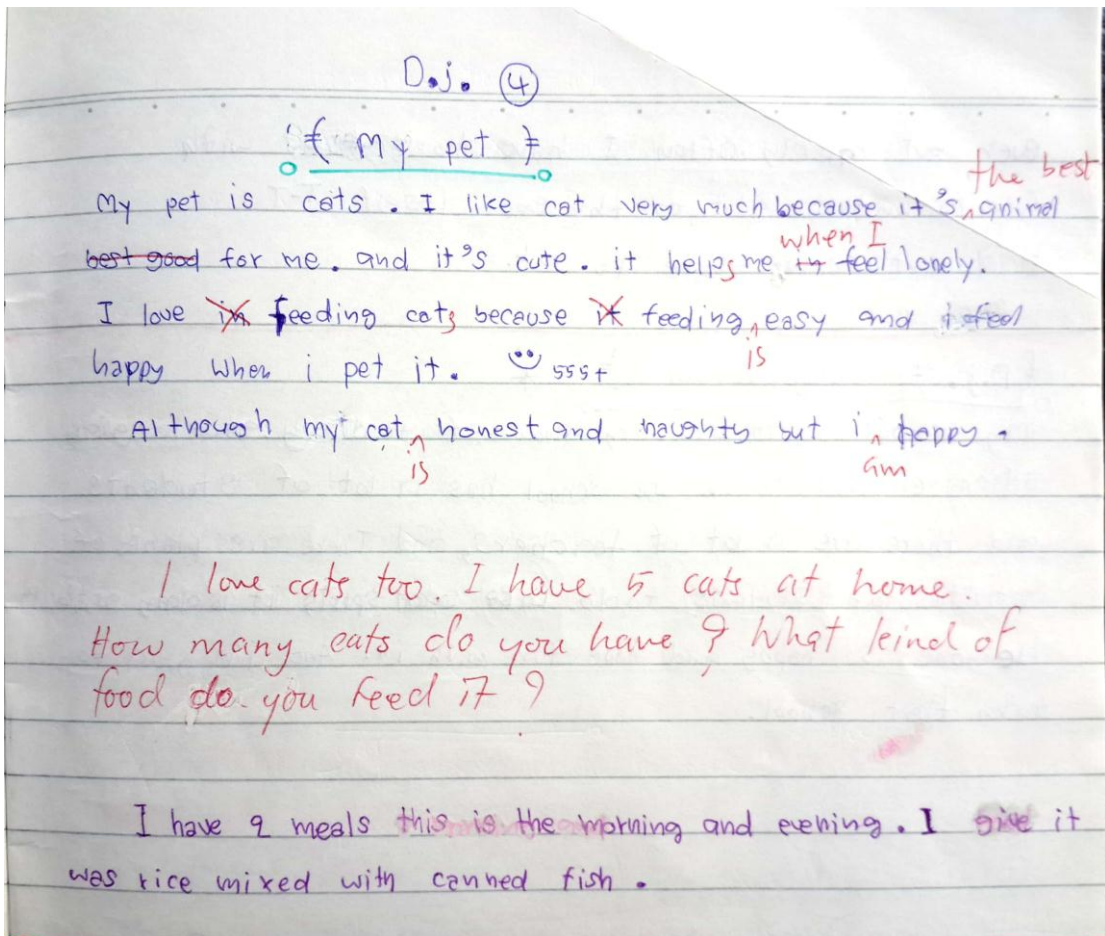 D.j. 4
My pet
the best
My pet is cats . I like cat very much because it's animal
when I
best good for me . and it's cute . it helps me in feel lonely.
I love in feeding cats because it feeding easy and i feel
is
happy when i pet it. 555+
Although my cat honest and naughty but i happy .
is am
I love cats too. I have 5 cats at home.
How many cats do you have ? What kind of
food do you feed it ?
I have 2 meals this is the morning and evening . I give it
was rice mixed with canned fish .